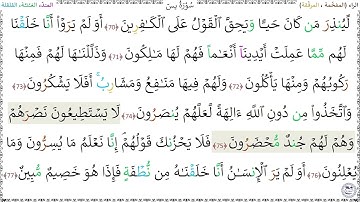 سُورَةُ يسٓ
لِّيُنذِرَ مَن كَانَ حَيًّا وَيَحِقَّ ٱلْقَوْلُ عَلَى ٱلْكَٰفِرِينَ ﴿70﴾ أَوَلَمْ يَرَوْا۟ أَنَّا خَلَقْنَا
لَهُم مِّمَّا عَمِلَتْ أَيْدِينَآ أَنْعَٰمًا فَهُمْ لَهَا مَٰلِكُونَ ﴿71﴾ وَذَلَّلْنَٰهَا لَهُمْ فَمِنْهَا
رَكُوبُهُمْ وَمِنْهَا يَأْكُلُونَ ﴿72﴾ وَلَهُمْ فِيهَا مَنَٰفِعُ وَمَشَارِبُ ۖ أَفَلَا يَشْكُرُونَ ﴿73﴾
وَٱتَّخَذُوا۟ مِن دُونِ ٱللَّهِ ءَالِهَةً لَّعَلَّهُمْ يُنصَرُونَ ﴿74﴾ لَا يَسْتَطِيعُونَ نَصْرَهُمْ
وَهُمْ لَهُمْ جُندٌ مُّحْضَرُونَ ﴿75﴾ فَلَا يَحْزُنكَ قَوْلُهُمْ ۘ إِنَّا نَعْلَمُ مَا يُسِرُّونَ وَمَا
يُعْلِنُونَ ﴿76﴾ أَوَلَمْ يَرَ ٱلْإِنسَٰنُ أَنَّا خَلَقْنَٰهُ مِن نُّطْفَةٍ فَإِذَا هُوَ خَصِيمٌ مُّبِينٌ ﴿77﴾